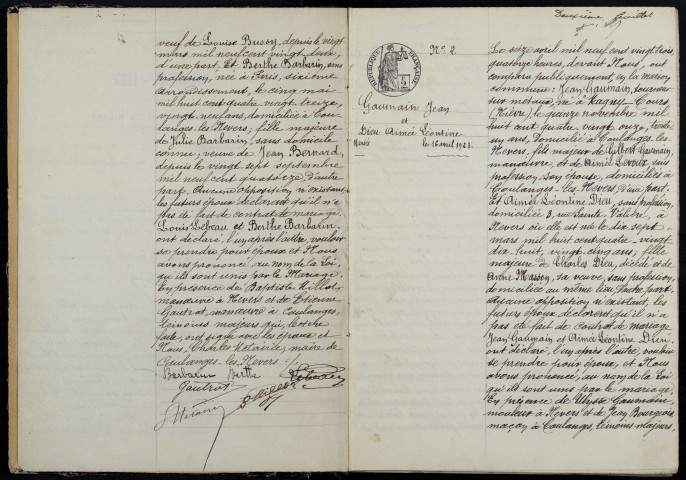 veuf de Louise Bussy, depuis le vingt
mars mil neuf cent vingt deux,
d'une part, Et Berthe Barbarin, sans
profession, née à Paris, sixième
arrondissement, le cinq mai
mil huit cent quatre vingt treize,
vingt neuf ans, domiciliée à Cou-
langes-les-Nevers, fille majeure
de Julie Barbarin, sans domicile
connu, veuve de Jean Bernard,
depuis le vingt sept septembre
mil neuf cent quatorze, d'autre
part. Aucune opposition n'existant
les futurs époux déclarent qu'il n'a
pas été fait de contrat de mariage.
Louis Lebeau et Berthe Barbarin
ont déclaré, l'un après l'autre, vouloir
se prendre pour époux et Nous
avons prononcé au nom de la Loi,
qu'ils sont unis par le Mariage.
En présence de Baptiste Millot,
manœuvre à Nevers et de Etienne
Gautrot, manœuvre à Coulanges,
témoins majeurs qui, lecture
faite, ont signé avec les époux et
Nous, Charles Métairie, maire de
Coulanges-les-Nevers.
Barbarin Berthe
Gautrot
Deuxième feuillet
RÉPUBLIQUE FRANÇAISE
N° 2
Gaumain Jean
et
Dieu Aimée Léontine
Mariés le 16 avril 1923
Le seize avril mil neuf cent vingt trois,
quatorze heures, devant Nous, ont
comparu publiquement, en la maison
commune : Jean Gaumain, tourneur
sur métaux, né à Magny-Cours
(Nièvre), le quatre novembre mil
huit cent quatre vingt onze, trente
un ans, domicilié à Coulanges-les-
Nevers, fils majeur de Gilbert Gaumain,
manœuvre, et de Aimée Leroux, sans
profession, son épouse, domiciliés à
Coulanges-les-Nevers d'une part.
Et Aimée Léontine Dieu, sans profession,
domiciliée 3, rue Sainte Valière, à
Nevers où elle est née le dix sept
mars mil huit cent quatre-vingt
dix huit, vingt cinq ans, fille
majeure de Charles Dieu, décédé et de
Anne Masson, sa veuve, sans profession,
domiciliée au même lieu, d'autre part.
Aucune opposition n'existant, les
futurs époux déclarent qu'il n'a
pas été fait de contrat de mariage
Jean Gaumain et Aimée Léontine Dieu
ont déclaré, l'un après l'autre, vouloir
se prendre pour époux, et Nous
avons prononcé, au nom de la Loi
qu'ils sont unis par le mariage.
En présence de Ulysse Gaumain,
mouleur à Nevers et de Jean Bourgeois,
maçon à Coulanges, témoins majeurs,